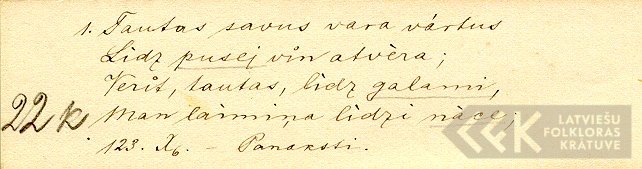 1. Tautas savus vara vártus
Lidz pusej vin atvèra;
Verit, tautas, lidz galami,
22 k Man láimiņa lidzi nàce;
123. X₆. – Panaksti.
LATVIEŠU
FOLKLORAS
KRĀTUVE